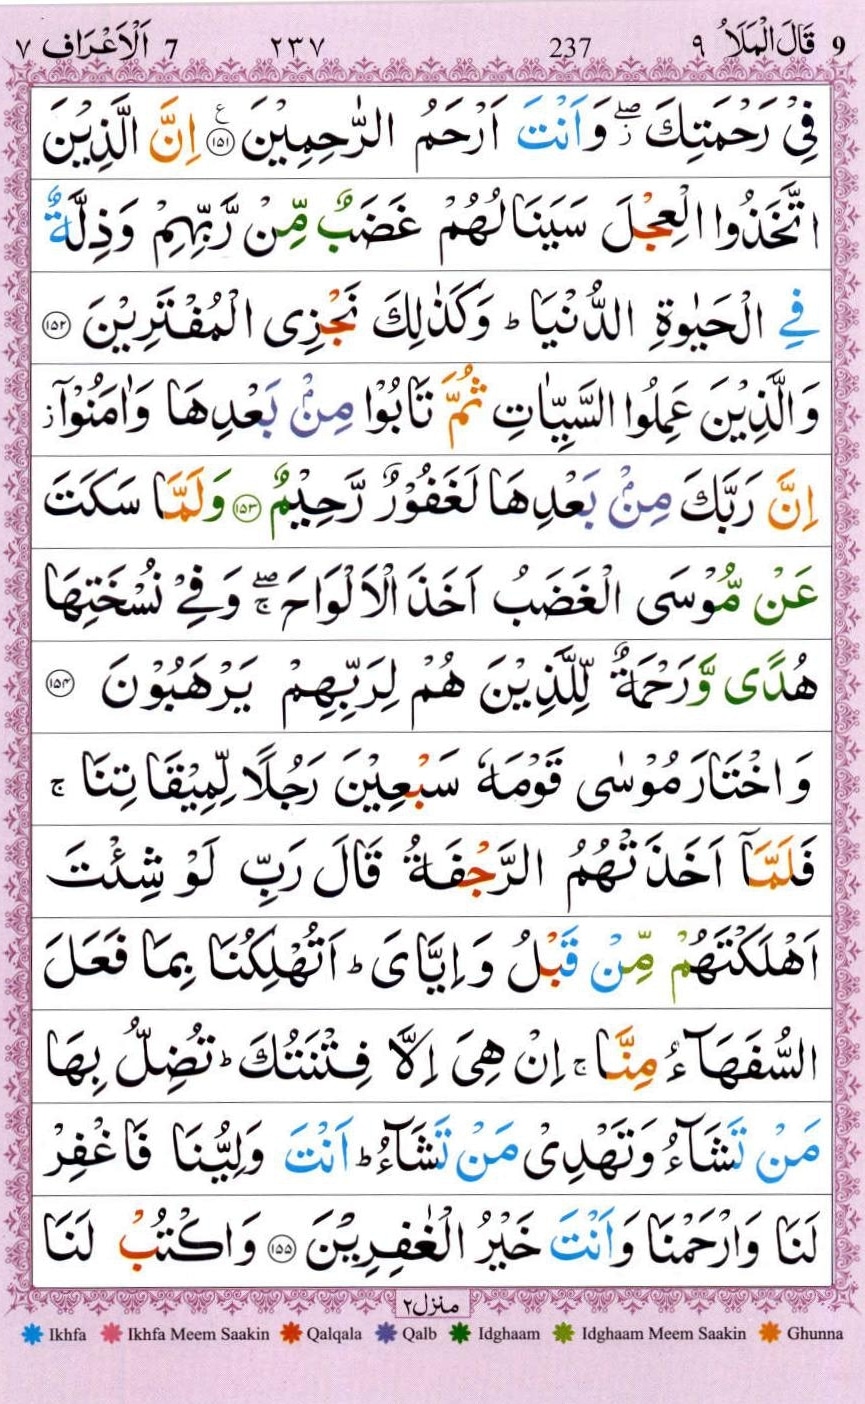 9 قَالَ الْمَلَاُ ٩ 237 ٢٣٧ 7 اَلْاَعْرَاف ٧
فِىْ رَحْمَتِكَ ۖ ز وَاَنْتَ اَرْحَمُ الرّٰحِمِيْنَ ﴿۱۵۱﴾ ع اِنَّ الَّذِيْنَ
اتَّخَذُوا الْعِجْلَ سَيَنَالُهُمْ غَضَبٌ مِّنْ رَّبِّهِمْ وَذِلَّةٌ
فِى الْحَيٰوةِ الدُّنْيَا ؕ وَكَذٰلِكَ نَجْزِى الْمُفْتَرِيْنَ ﴿۱۵۲﴾
وَالَّذِيْنَ عَمِلُوا السَّيِّاٰتِ ثُمَّ تَابُوْا مِنْۢ بَعْدِهَا وَاٰمَنُوْۤا ز
اِنَّ رَبَّكَ مِنْۢ بَعْدِهَا لَغَفُوْرٌ رَّحِيْمٌ ﴿۱۵۳﴾ وَلَمَّا سَكَتَ
عَنْ مُّوْسَى الْغَضَبُ اَخَذَ الْاَلْوَاحَ ۖ ج وَفِىْ نُسْخَتِهَا
هُدًى وَّرَحْمَةٌ لِّلَّذِيْنَ هُمْ لِرَبِّهِمْ يَرْهَبُوْنَ ﴿۱۵۴﴾
وَاخْتَارَ مُوْسٰى قَوْمَهٗ سَبْعِيْنَ رَجُلًا لِّمِيْقَاتِنَا ۚ
فَلَمَّاۤ اَخَذَتْهُمُ الرَّجْفَةُ قَالَ رَبِّ لَوْ شِئْتَ
اَهْلَكْتَهُمْ مِّنْ قَبْلُ وَاِيَّاىَ ؕ اَتُهْلِكُنَا بِمَا فَعَلَ
السُّفَهَآءُ مِنَّا ۚ اِنْ هِىَ اِلَّا فِتْنَتُكَ ؕ تُضِلُّ بِهَا
مَنْ تَشَآءُ وَتَهْدِىْ مَنْ تَشَآءُ ؕ اَنْتَ وَلِيُّنَا فَاغْفِرْ
لَنَا وَارْحَمْنَا وَاَنْتَ خَيْرُ الْغٰفِرِيْنَ ﴿۱۵۵﴾ وَاكْتُبْ لَنَا
منزل ٢
Ikhfa Ikhfa Meem Saakin Qalqala Qalb Idghaam Idghaam Meem Saakin Ghunna